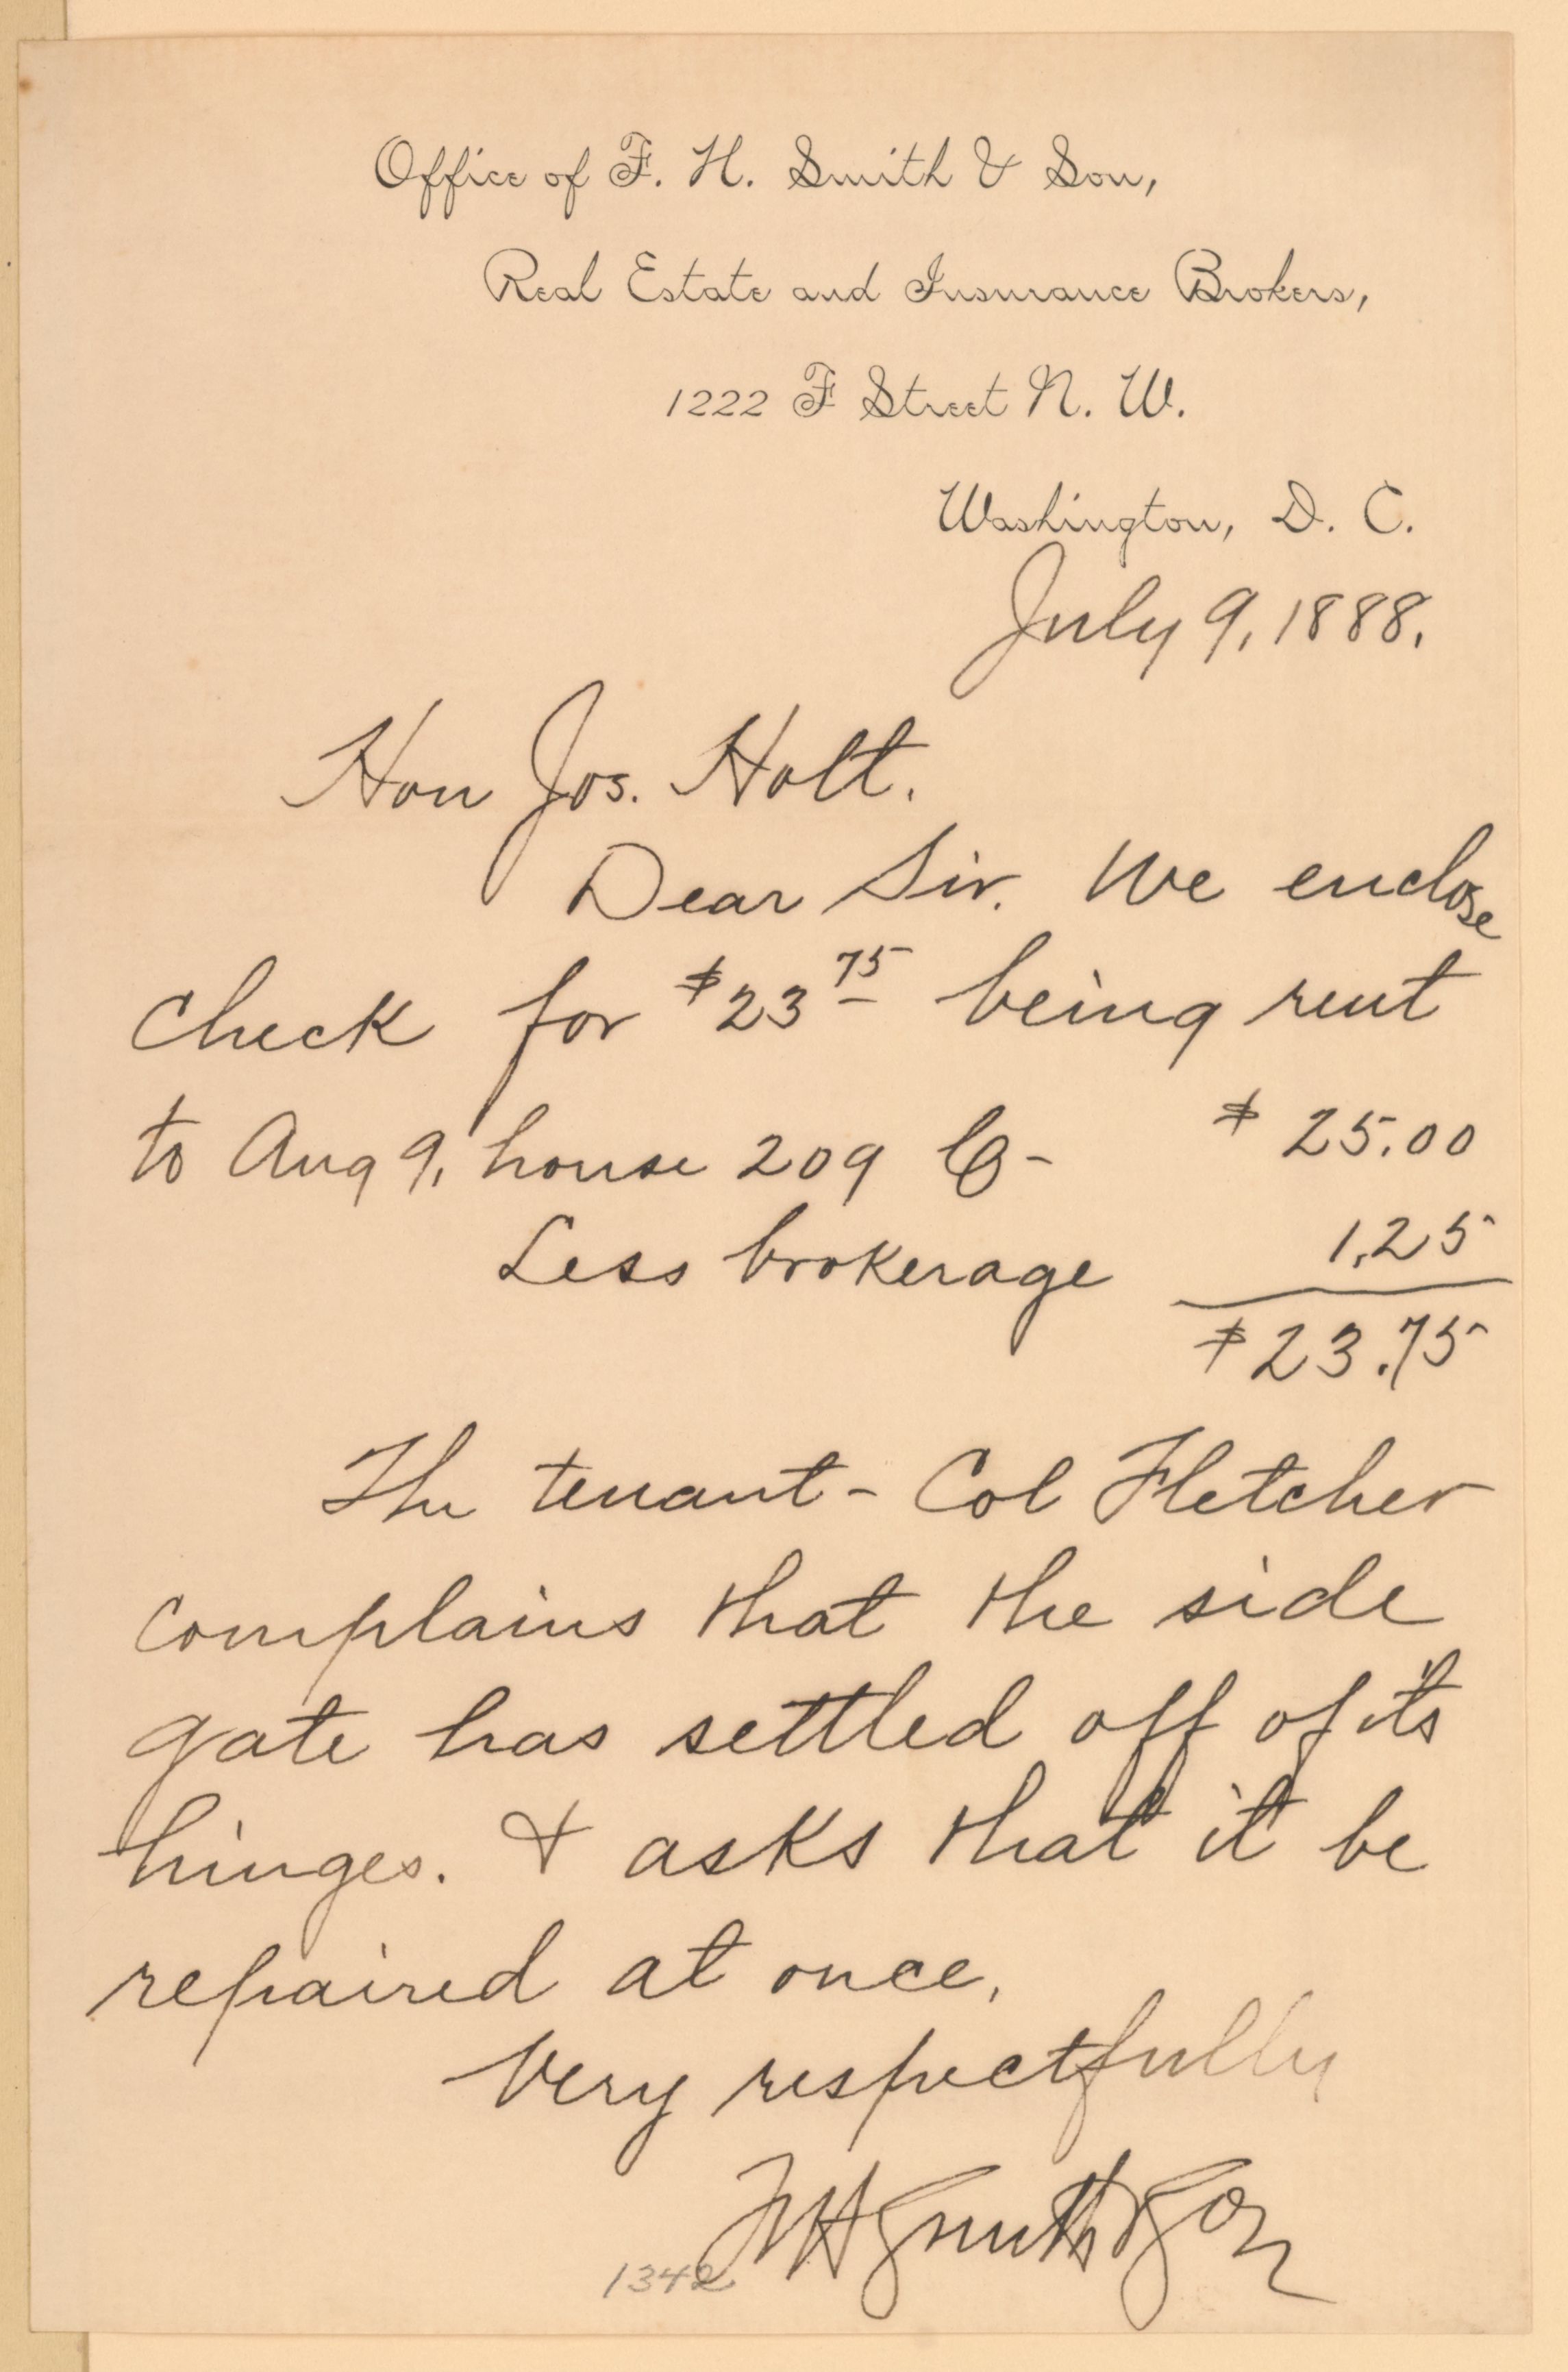 Office of F. H. Smith & Son,
Real Estate and Insurance Brokers,
1222 F Street N. W.
Washington, D. C.
July 9, 1888.
Hon Jos. Holt.
Dear Sir. We enclose
check for $23 75 being rent
to Aug 9, house 209 C- $ 25.00
Less brokerage 1.25
$23.75
The tenant - Col Fletcher
complains that the side
gate has settled off of its
hinges. & asks that it be
repaired at once.
Very respectfully
F H Smith & Son
1342